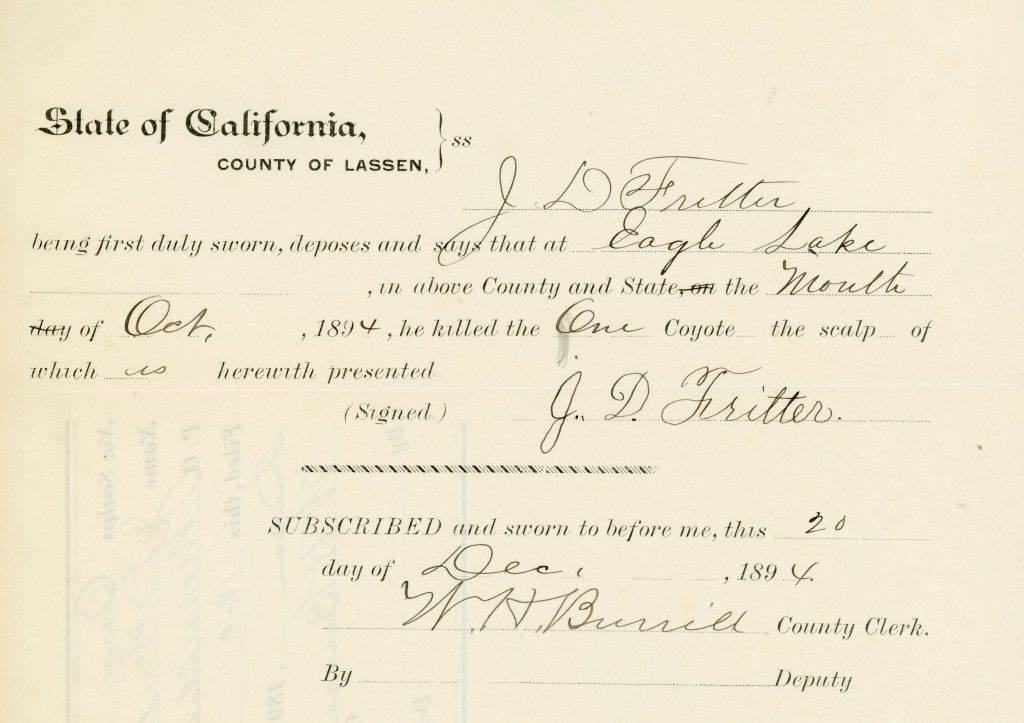 State of California,
COUNTY OF LASSEN, } ss
J. D Fritter
being first duly sworn, deposes and says that at Eagle Lake
, in above County and State, on the Month
day of Oct, , 1894, he killed the One Coyote the scalp of
which is herewith presented
(Signed) J. D. Fritter.
SUBSCRIBED and sworn to before me, this 20
day of Dec. , 1894.
W. H. Burrill County Clerk.
By Deputy
By
Filed, this
Name
No. Scalps